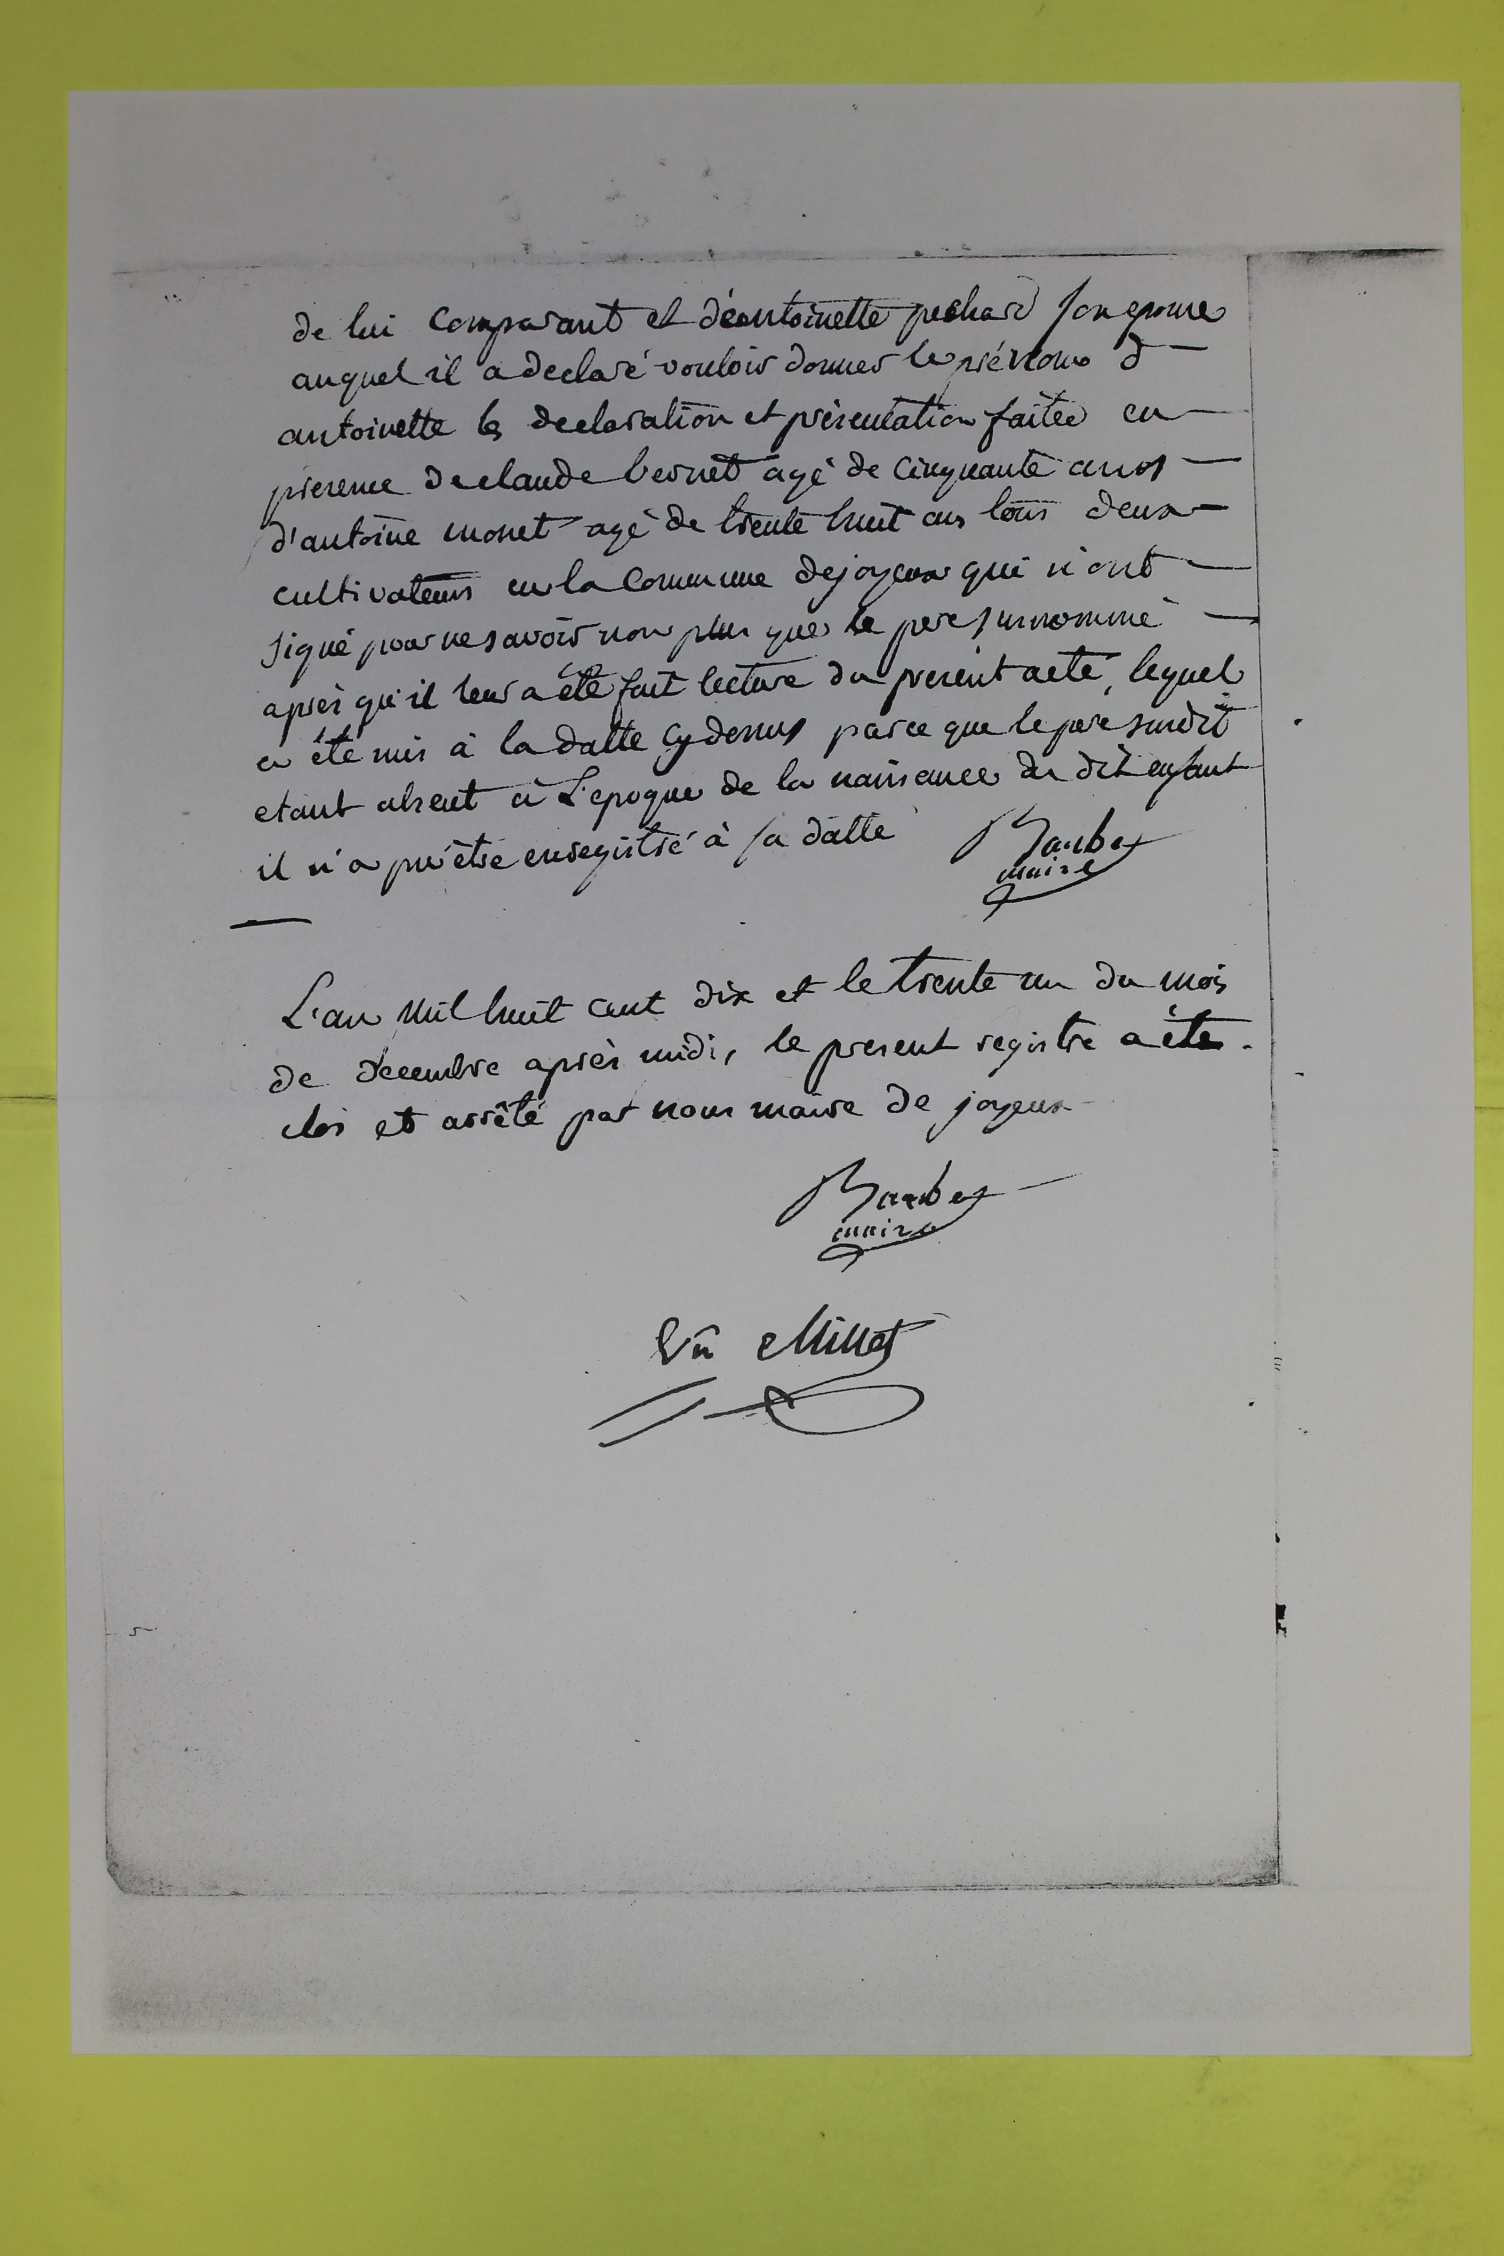 de lui comparant et d'eantoinette pechard son epouse
auquel il a declaré vouloir donner le prénom d
antoinette les declaration et présentation faitee en
presence de claude bernet agé de cinquante ans
d'antoine monet agé de trente huit ans tous deux
cultivateurs en la commune de joyeux qui n'ont
signé pour ne savoir non plus que le pere surnommé
après qu'il leur a été fait lecture du present acte, lequel
a été mis à la datte cy dessus parce que le pere susdit
etant absent à L'epoque de la naissance du dit enfant
il n'a pu être enregistré à sa datte
maire
L'an mil huit cent dix et le trente un du mois
de decembre après midi, le present registre a été
clos et arrêté par nous maire de joyeux
maire
Vû Millet